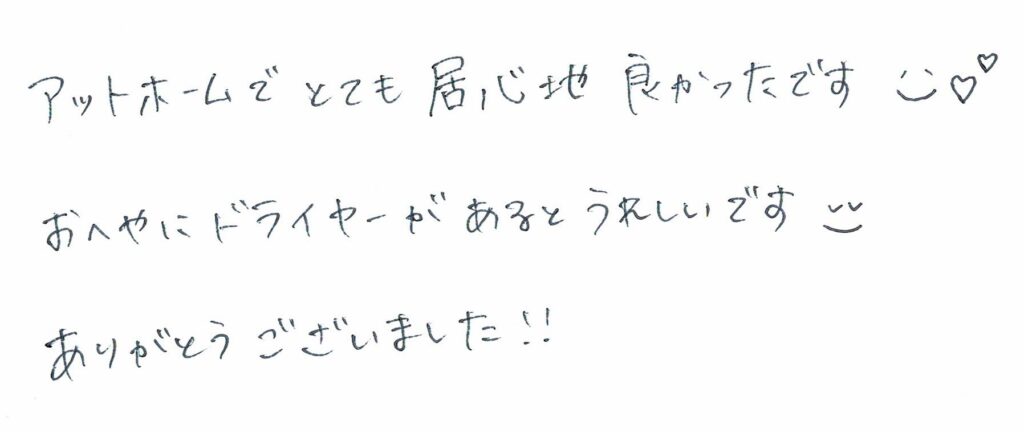 アットホームで とても 居心地 良かったです ♡♡
おへやに ドライヤーが あると うれしいです
ありがとう ございました!!